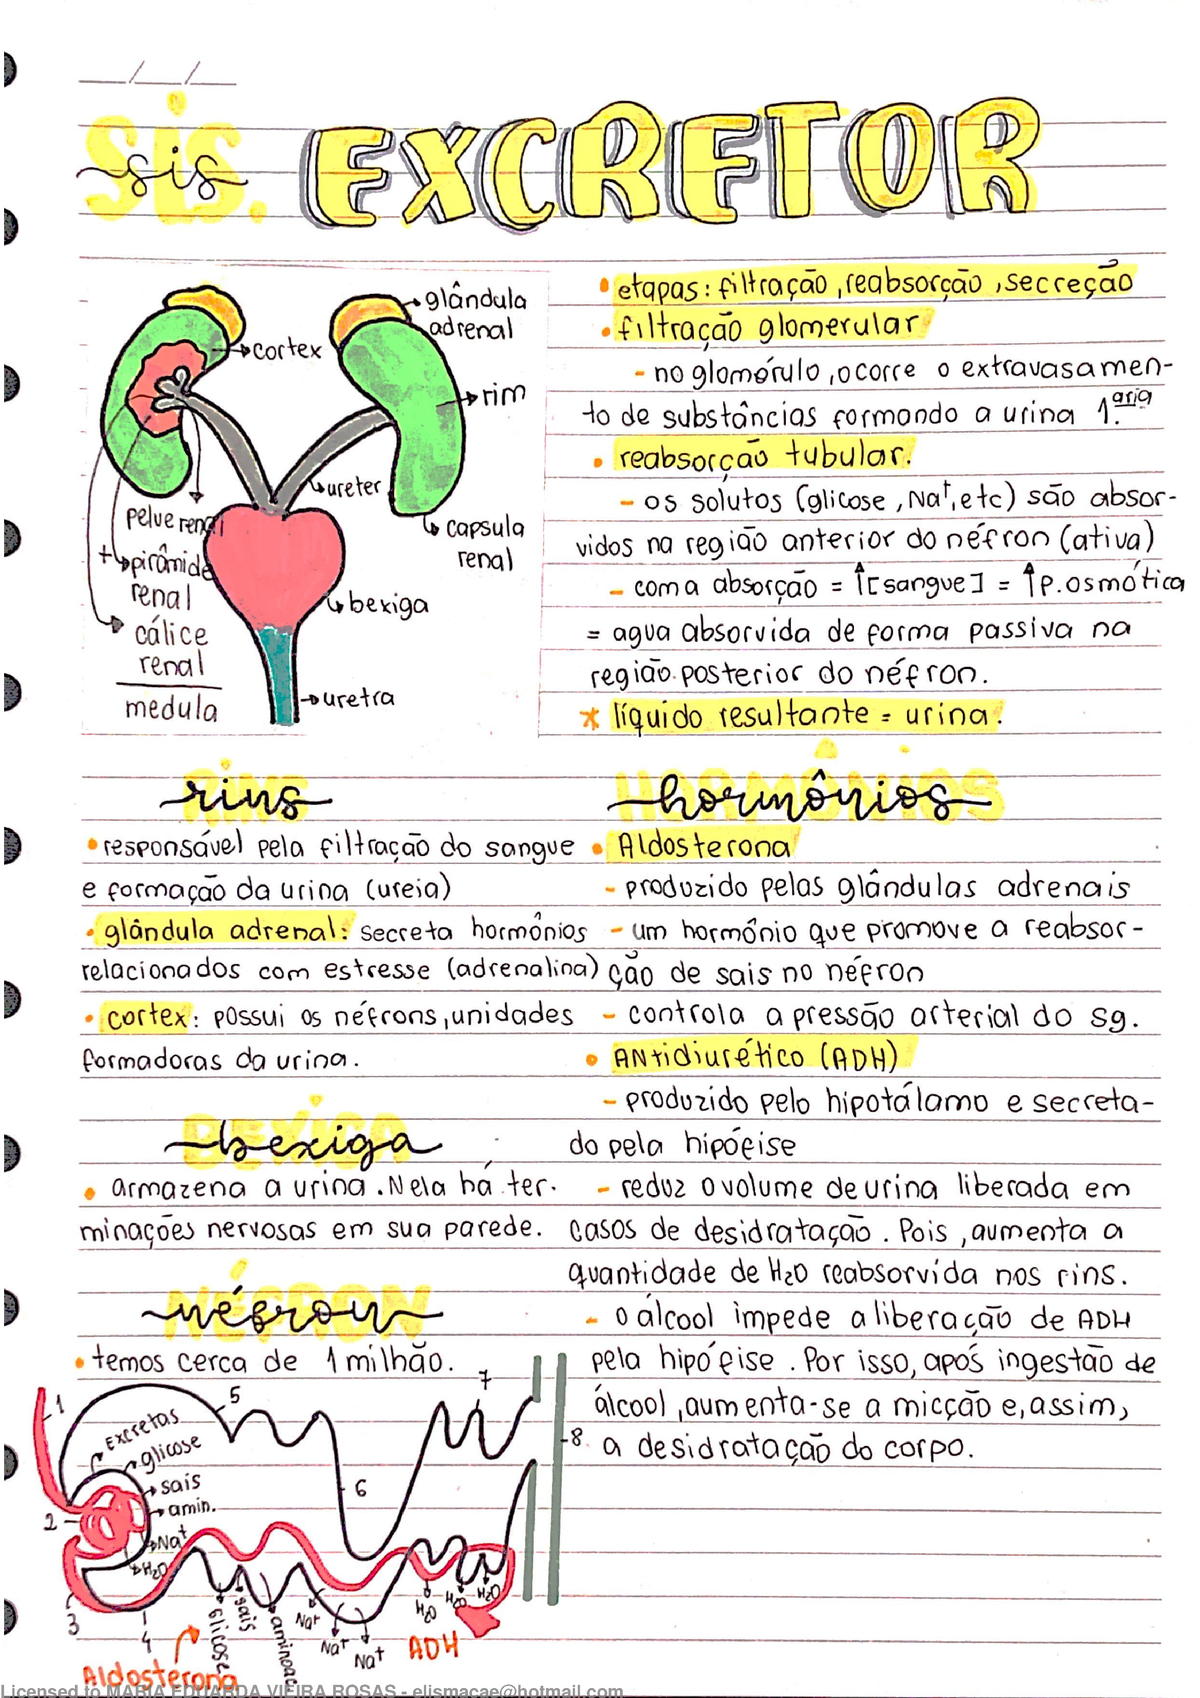 sis. EXCRETOR
glândula
adrenal
cortex
rim
ureter
capsula
renal
pelve renal
+ pirâmide
renal
cálice
renal
medula
bexiga
uretra
• etapas: filtração, reabsorção, secreção
• filtração glomerular
- no glomérulo, ocorre o extravasamen-
to de substâncias formando a urina 1.ária
• reabsorção tubular.
- os solutos (glicose, Na⁺, etc) são absor-
vidos na região anterior do néfron (ativa)
- com a absorção = ↑[sangue] = ↑p. osmótica
= agua absorvida de forma passiva na
região posterior do néfron.
* líquido resultante = urina.
rins
• responsável pela filtração do sangue
e formação da urina (ureia)
• glândula adrenal: secreta hormônios
relacionados com estresse (adrenalina)
• cortex: possui os néfrons, unidades
formadoras da urina.
bexiga
• armazena a urina. Nela há ter.
minações nervosas em sua parede.
néfron
• temos cerca de 1 milhão.
hormônios
• Aldosterona
- produzido pelas glândulas adrenais
- um hormônio que promove a reabsor-
ção de sais no néfron
- controla a pressão arterial do sg.
• ANtidiurético (ADH)
- produzido pelo hipotálamo e secreta-
do pela hipófise
- reduz o volume de urina liberada em
casos de desidratação. Pois, aumenta a
quantidade de H₂O reabsorvida nos rins.
- o álcool impede a liberação de ADH
pela hipófise. Por isso, após ingestão de
álcool, aumenta-se a micção e, assim,
a desidratação do corpo.
1
5
7
Excretas
glicose
8
sais
6
amin.
2
Na⁺
H₂O
3
4
Glicose
sais
aminoac
Na⁺
Na⁺
Na⁺
H₂O
H₂O
H₂O
ADH
Aldosterona
Licensed to MARIA EDUARDA VIEIRA ROSAS - elismacae@hotmail.com